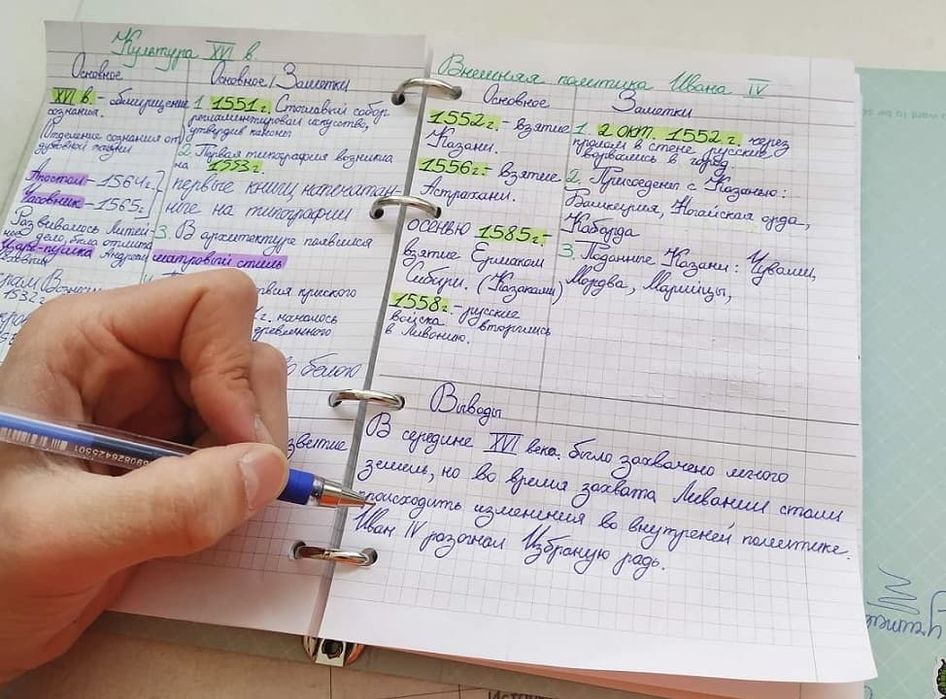 Культура XVI в.
Основное
XVI в. - обмирщение
сознания.
Отделение сознания от
духовной
Апостол - 1564г.
Часовник - 1565г.
Развивалось Литей-
ное дело, была отлита
Царь-пушка Андреем
1532г
Основное/Заметки
1. 1551г. Стоглавый собор
регламентировал искусство,
утвердив
2. Первая типография возникла
на 1553г.
первые книги напечатан-
ные на типографии
3. В архитектуре появился
шатровый стиль
г. началось
белого
Внешняя политика Ивана IV
Основное
1552г. - взятие
Казани.
1556г. - взятие
Астрахани.
осенью 1585г. -
взятие Ермаком
Сибири. (Казаками)
1558г. - русские
войска вторглись
в Ливонию.
Заметки
1. 2 окт. 1552г. через
пролом в стене русские
ворвались в город
2. Присоедены с Казанью:
Башкирия, Ногайская орда,
Кабарда
3. Поданные Казани: Чуваши,
Мордва, Марийцы,
Выводы
В середине XVI века было захвачено много
земель, но во время захвата Ливании стали
происходить изменения во внутреней политике.
Иван IV разогнал Избраную радь.
9082642550